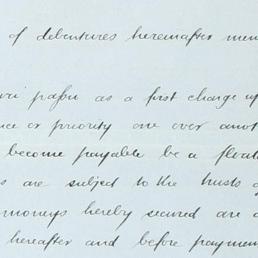 of debentures hereinafter men
ari passu as a first charge up
nce or priority one over anot
become payable be a floati
s are subject to the trusts
moneys hereby secured are
hereafter and before paymen